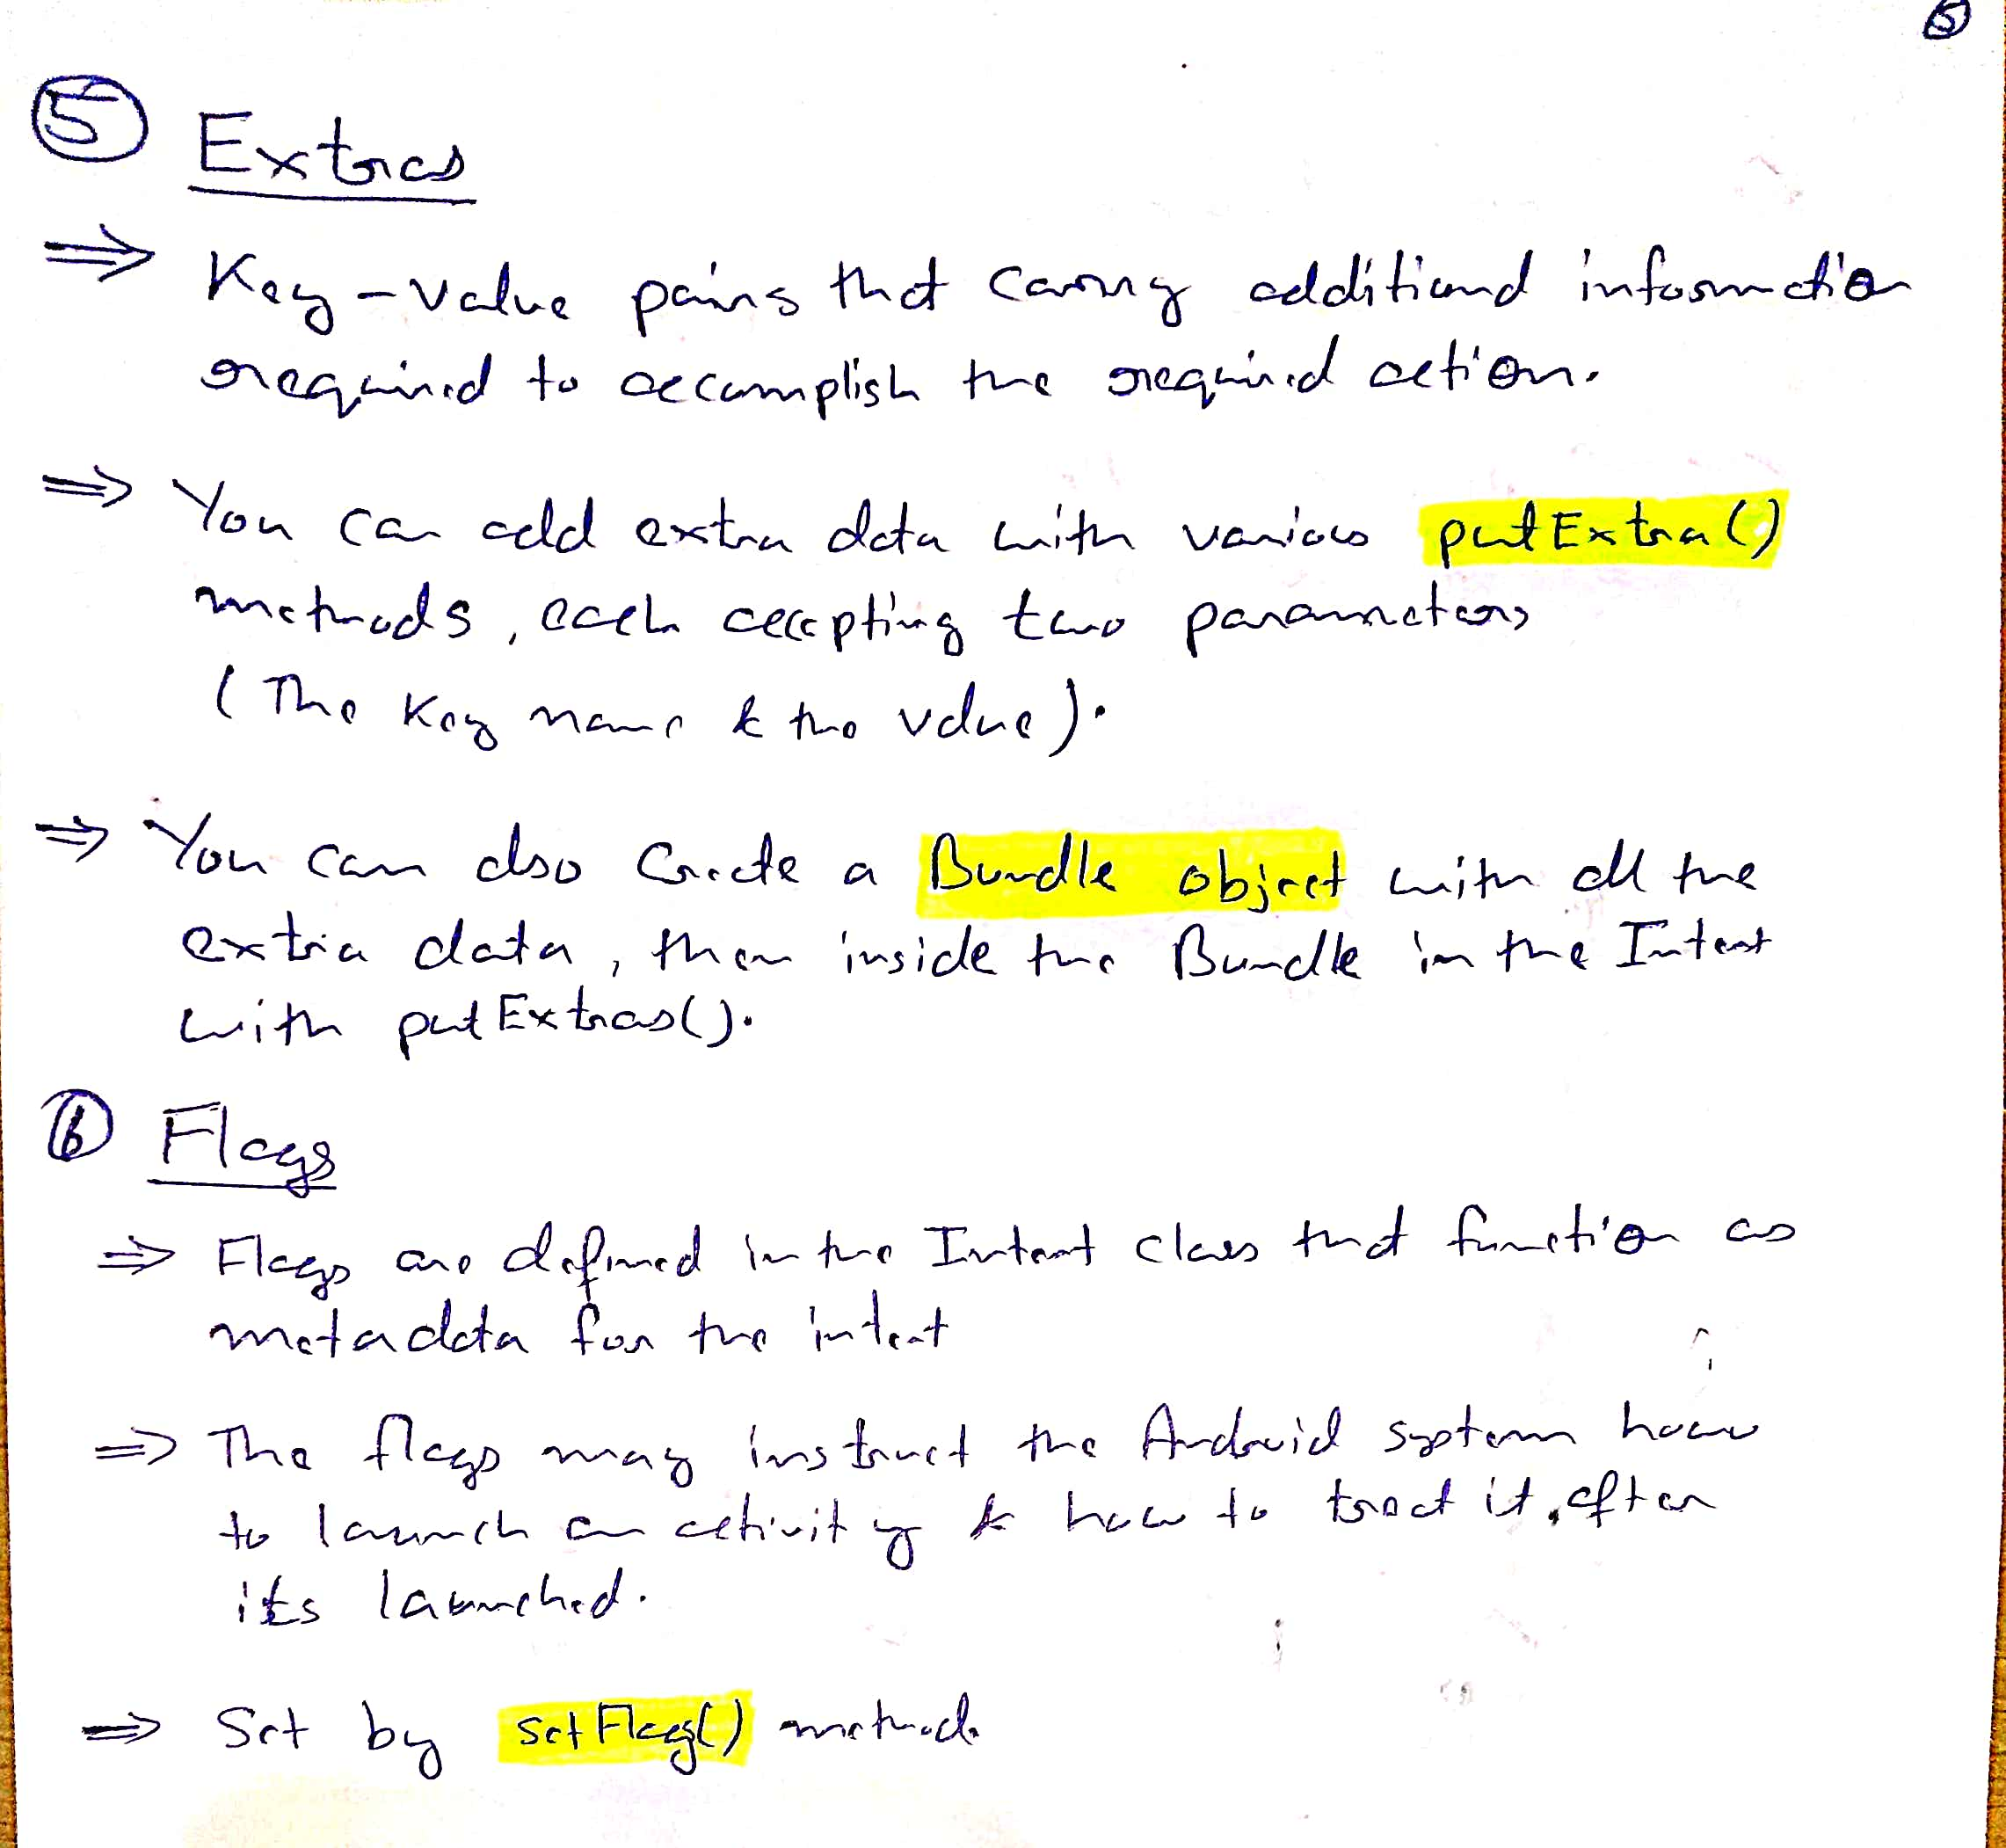 5
5 Extras
⇒ Key-value pairs that carry additional information
required to accomplish the required action.
⇒ You can add extra data with various putExtra()
methods, each accepting two parameters
(The key name & the value).
⇒ You can also create a Bundle object with all the
extra data, then inside the Bundle in the Intent
with putExtras().
6 Flags
⇒ Flags are defined in the Intent class that function as
metadata for the intent
⇒ The flags may instruct the Android system how
to launch an activity & how to treat it, after
its launched.
⇒ Set by setFlag() method.